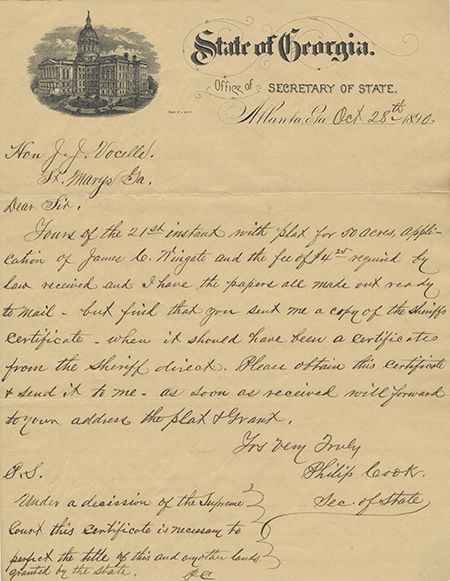 State of Georgia.
Office of SECRETARY OF STATE.
Atlanta, Ga Oct 28th 1890.
Hon J. J. Vocelle.
St. Marys Ga.
Dear Sir.
Yours of the 21st instant with plat for 50 acres, appli-
cation of James C. Wingate and the fee of $4 required by
law received and I have the papers all made out ready
to mail - but find that you sent me a copy of the Sheriffs
Certificate - when it should have been a certificate
from the Sheriff direct. Please obtain this certificate
& send it to me - as soon as received will forward
to your address the plat & Grant.
Yrs Very Truly
Philip Cook.
Sec. of State
P.S.
Under a decission of the Supreme
Court this certificate is necessary to
perfect the title of this and any other lands
granted by the state.
P C